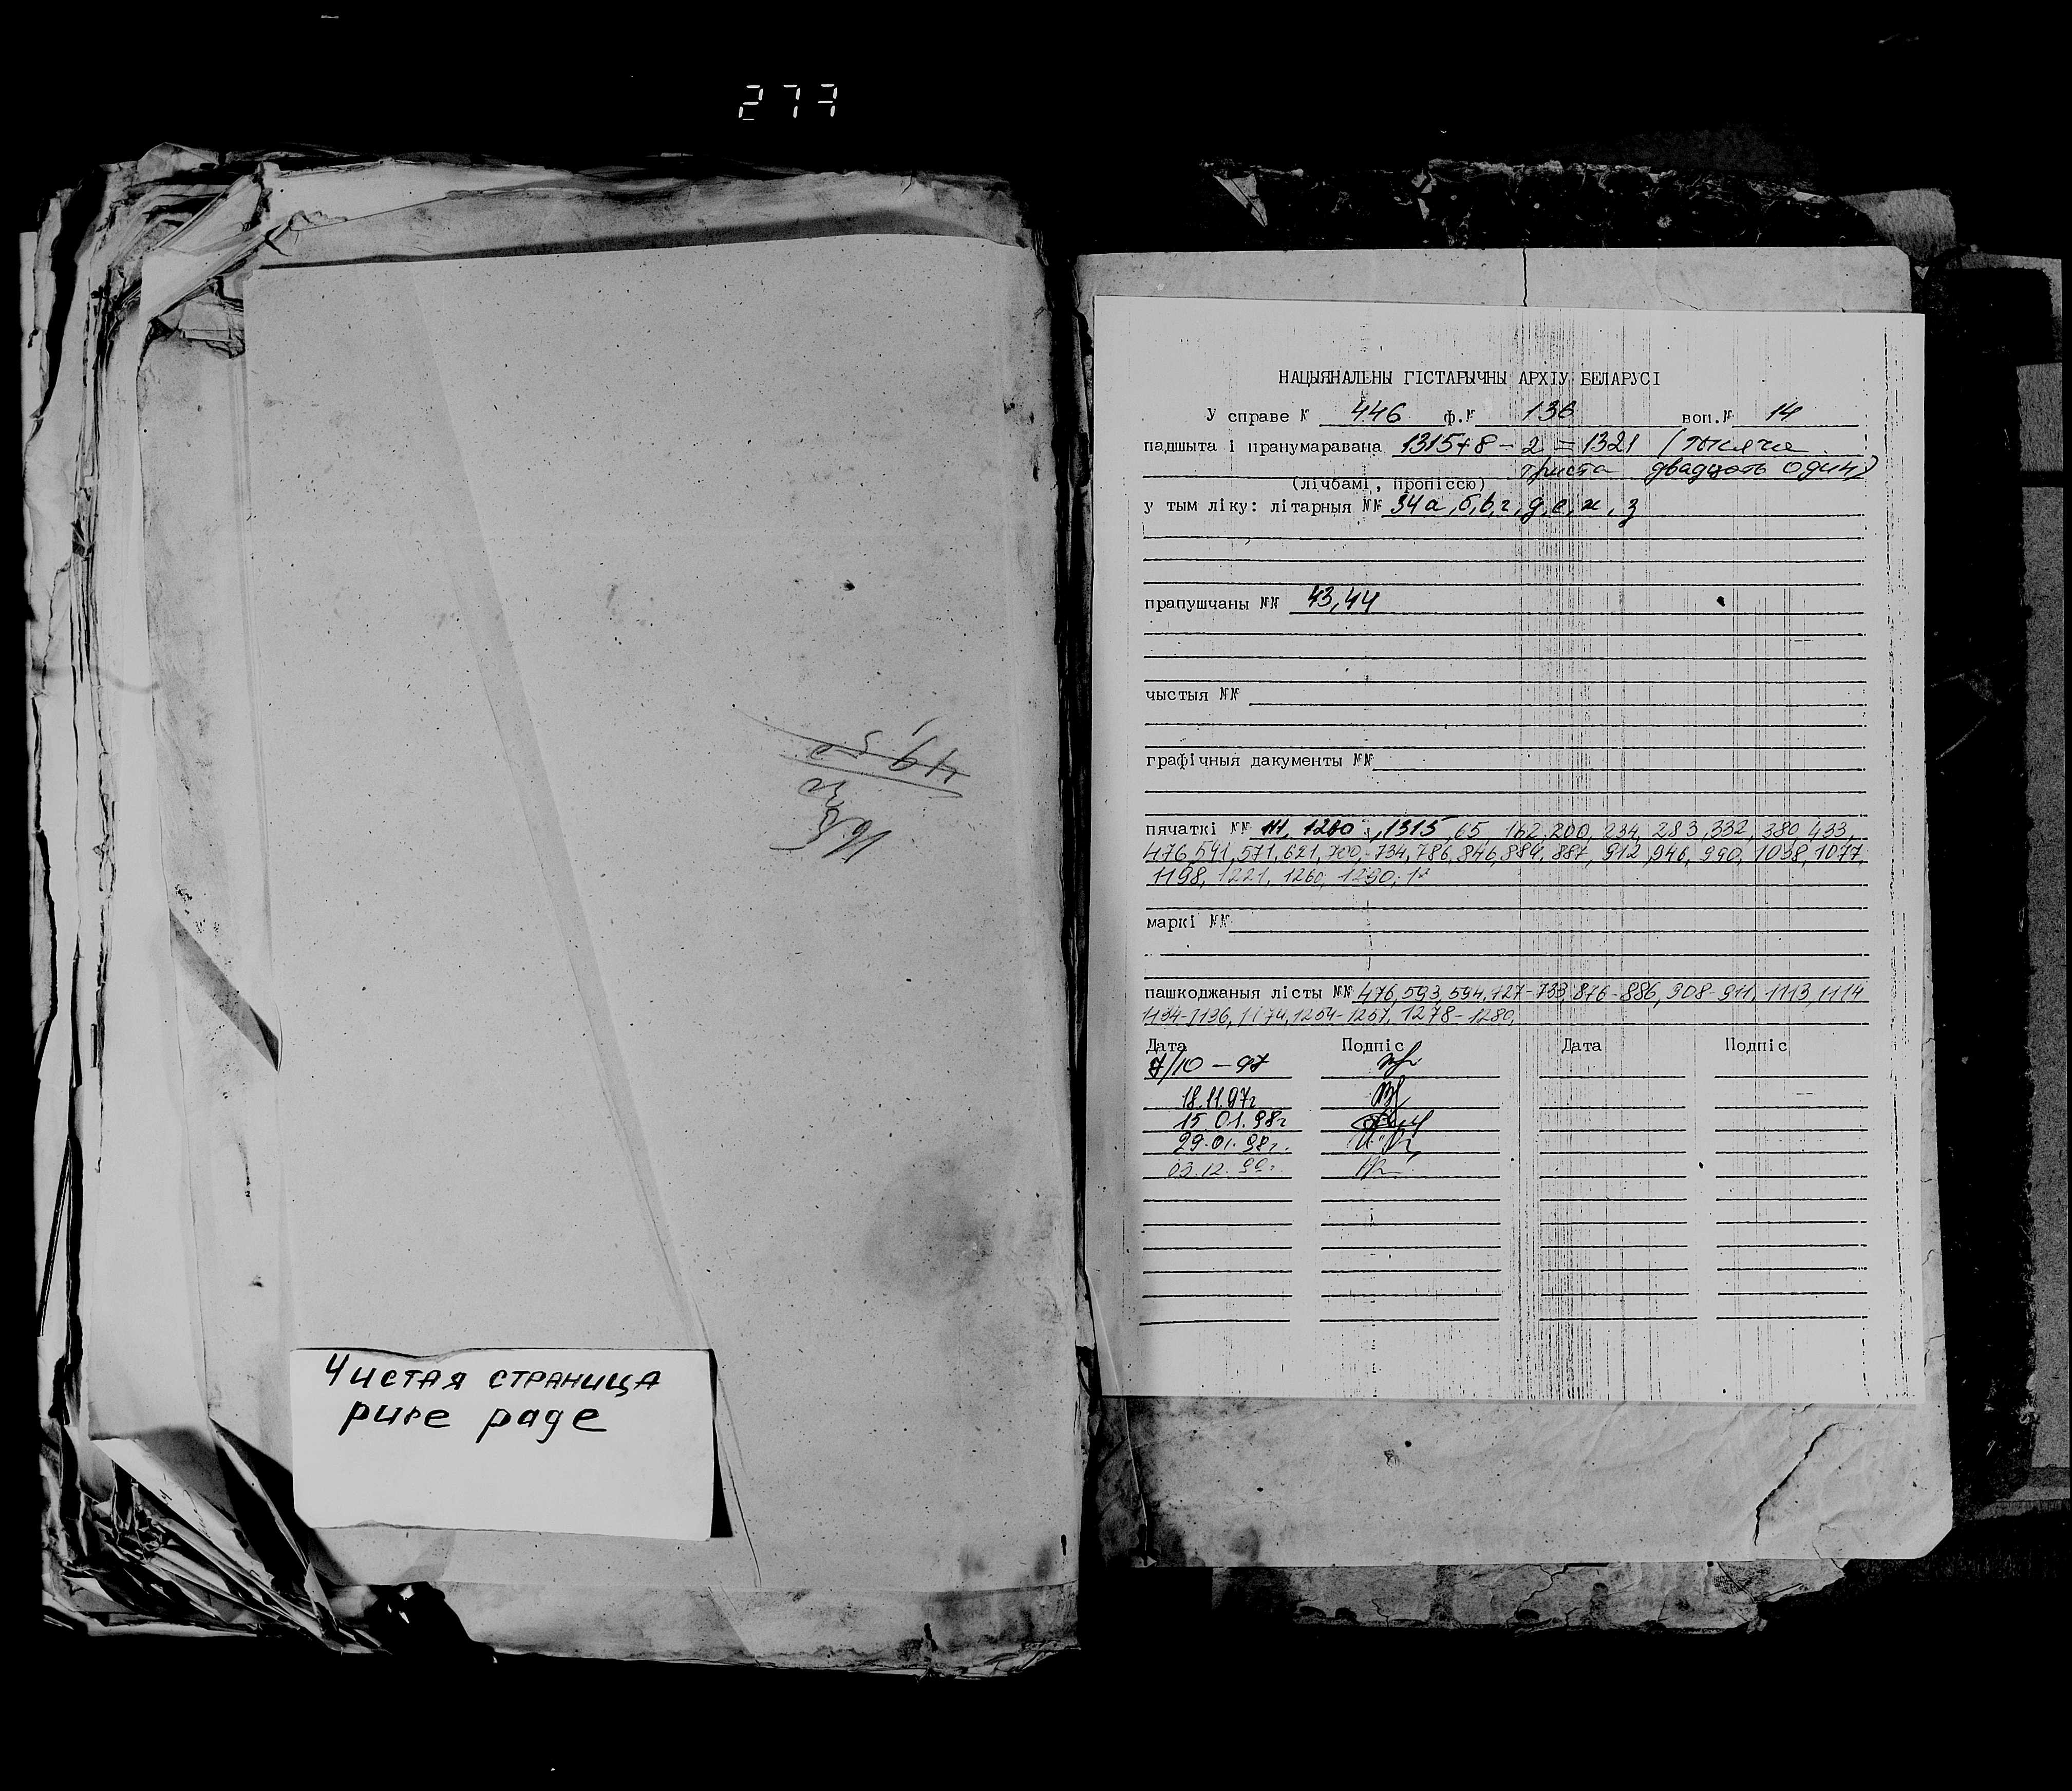 277
Чистая страница
pure page
НАЦЫЯНАЛЬНЫ ГІСТАРЫЧНЫ АРХІУ БЕЛАРУСІ
У справе № 446 ф.№ 136 воп.№ 14
падшыта і пранумаравана 1315+8-2=1321 (тысяча
триста двадцать один)
(лічбамі, пропіссю)
у тым ліку: літарныя №№ 34а,б,в,г,д,е,ж,з
прапушчаны №№ 43,44
чыстыя №№
графічныя дакументы №№
пячаткі №№ 1260, 1315, 65, 162, 200, 234, 283, 332, 380, 433,
476, 541, 571, 621, 700, 734, 786, 846, 884, 887, 912, 946, 990, 1038, 1077,
1198, 1221, 1260, 1290,
маркі №№
пашкоджаныя лісты №№ 476, 593, 594, 727-733, 876-886, 908-911, 1113, 1114
1134-1136, 1174, 1254-1257, 1278-1280,
Дата Подпіс Дата Подпіс
7/10-97
18.11.97г
15.01.98г
29.01.98г.
03.12.99г.